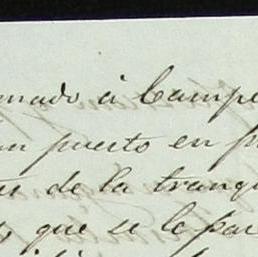 mado á Campe
un puerto en p
de la tranqu
que se le par